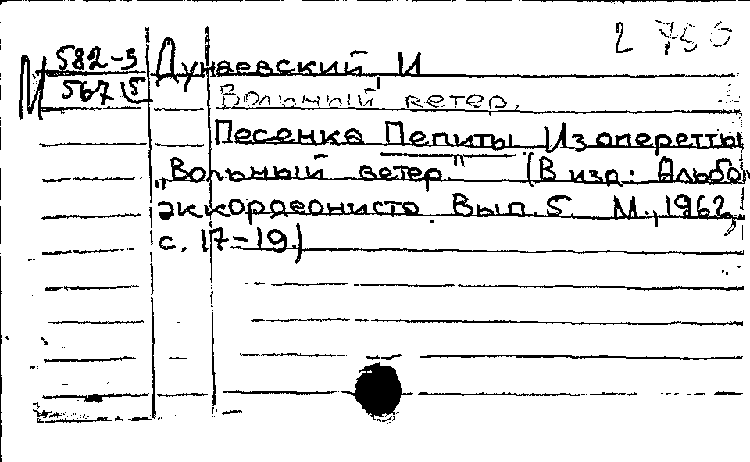 2 750
М 582-3 Дунаевский И
567 5 Вольный ветер.
Песенка Пепиты Из оперетты
„Вольный ветер." (В изд: Альбо
аккордеониста. Вып. 5 М., 1962,
с. 17-19)